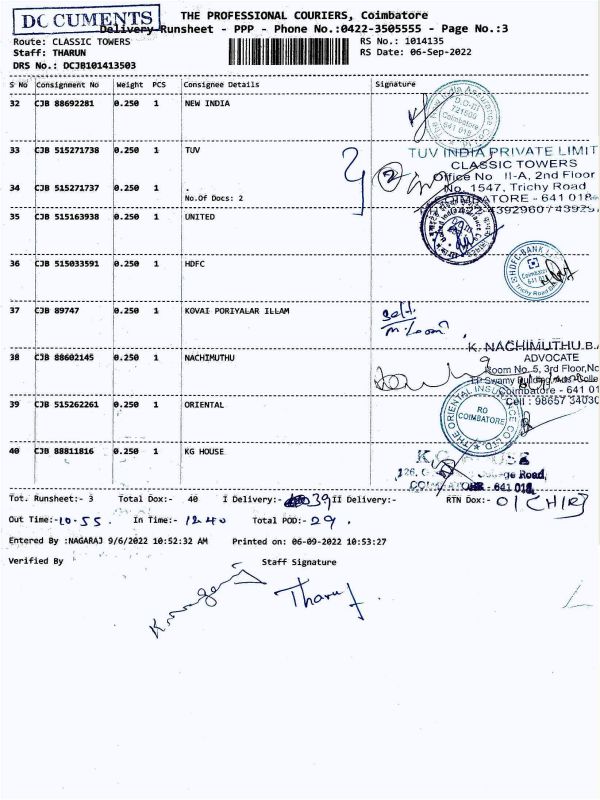 DOCUMENTS
THE PROFESSIONAL COURIERS, Coimbatore
Delivery Runsheet - PPP - Phone No.:0422-3505555 - Page No.:3
Route: CLASSIC TOWERS
Staff: THARUN
DRS No.: DCJB101413503
RS No.: 1014135
RS Date: 06-Sep-2022
S No Consignment No Weight PCS Consignee Details Signature
32 CJB 88692281 0.250 1 NEW INDIA
721600
Coimbatore
641 018
33 CJB 515271738 0.250 1 TUV
TUV INDIA PRIVATE LIMIT
CLASSIC TOWERS
Office No II-A, 2nd Floor
No. 1547, Trichy Road
COIMBATORE - 641 018
2
34 CJB 515271737 0.250 1 .
No.Of Docs: 2
35 CJB 515163938 0.250 1 UNITED
36 CJB 515033591 0.250 1 HDFC
HDFC BANK
Coimbatore
Trichy Road
37 CJB 89747 0.250 1 KOVAI PORIYALAR ILLAM
self.
38 CJB 88602145 0.250 1 NACHIMUTHU
K. NACHIMUTHU.B.A
ADVOCATE
Room No. 5, 3rd Floor,No
Coimbatore - 641 01
Cell : 98657 34030
39 CJB 515262261 0.250 1 ORIENTAL
THE ORIENTAL INSURANCE CO LTD
RO
COIMBATORE
40 CJB 88811816 0.250 1 KG HOUSE
Road,
COIMBATORE - 641 018
Tot. Runsheet:- 3 Total Dox:- 40 I Delivery:- 39 II Delivery:- RTN Dox:- 01 (HIR)
Out Time:- 10.55 In Time:- 12.40 Total POD:- 29.
Entered By :NAGARAJ 9/6/2022 10:52:32 AM Printed on: 06-09-2022 10:53:27
Verified By Staff Signature
Tharun